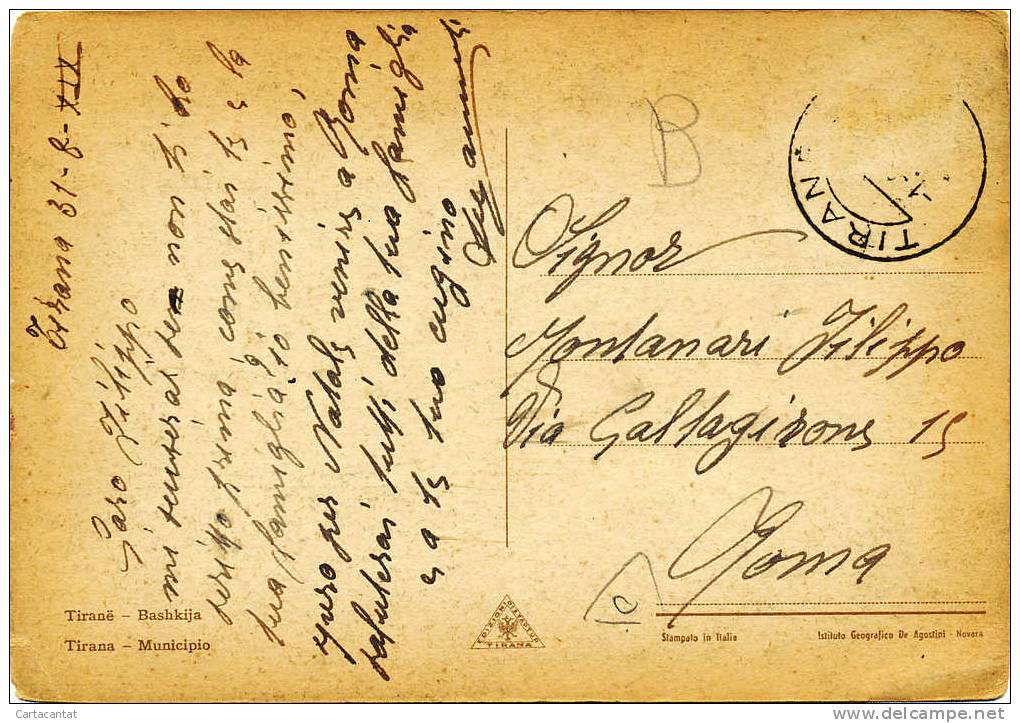 Tirana 31-8-XIX
Caro Filippo
mi scuserai se non ti ho
scritto prima, come stai tu e la
tua famiglia? io benissimo,
spero per Natale venire a Roma
saluterai tutti della tua famiglia
e a te tuo cugino
Signor
Montanari Filippo
Via Caltagirone 15
Roma
B
TIRAN
Tiranë – Bashkija
Tirana – Municipio
TIRANA
Stampato in Italia
Istituto Geografico De Agostini - Novara
Cartacantat
http://www.delcampe.net